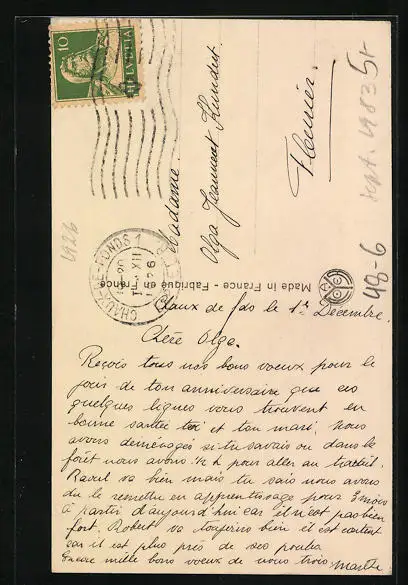 10
HELVETIA
Madame
Olga Jeanneret Kundert
Fleurier.
1926
Sept. 1983 5.-
48-6
CHAUX-DE-FONDS 1
1. XII
Made in France - Fabriqué en France
Chaux de fds le 1er Décembre.
Chère Olga.
Reçois tous nos bons voeux pour le
jour de ton anniversaire que ces
quelques lignes vous trouvent en
bonne santée toi et ton mari. Nous
avons deménagés si tu savais ou dans le
forêt nous avons ½ h pour aller au travail.
Raoul va bien mais tu sais nous avons
du le remettre en apprentissage pour 3 mois
à partir d'aujourd'hui car il n'est pas bien
fort. Robert va toujours bien il est content
car il est plus près de ses poules.
Encore mille bons voeux de nous trois Marthe